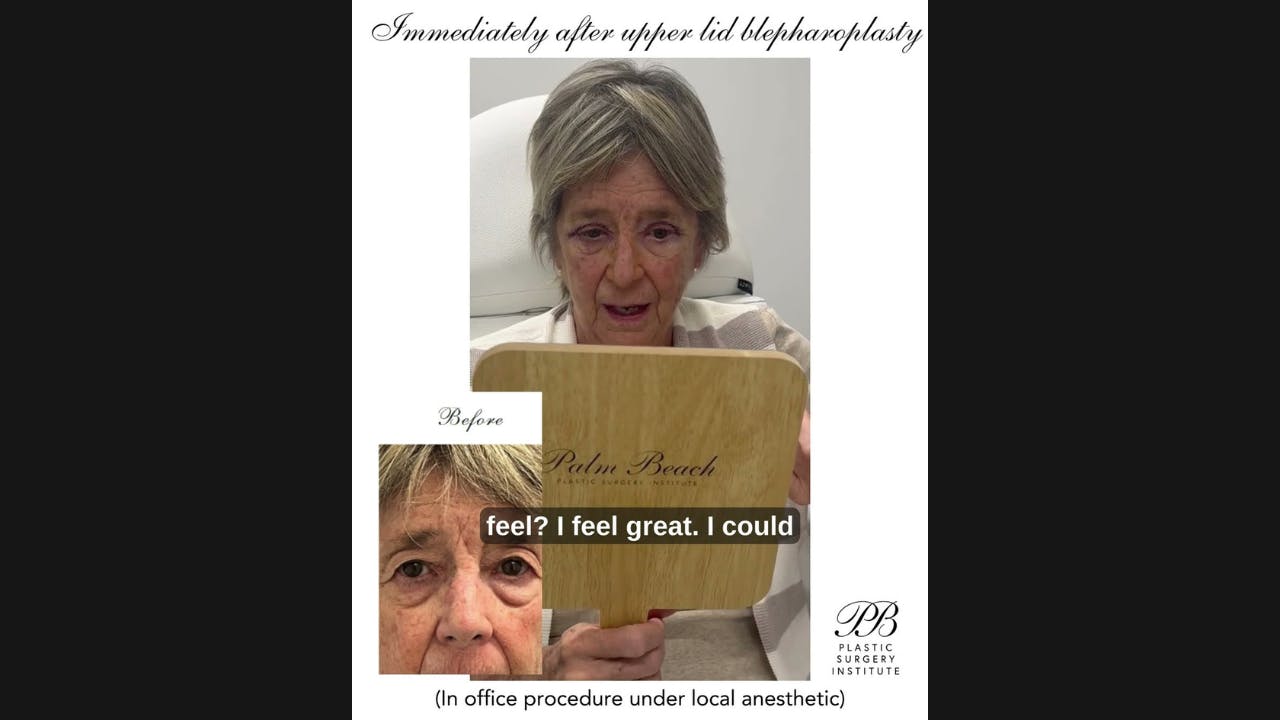 Immediately after upper lid blepharoplasty
Before
Palm Beach
PLASTIC SURGERY INSTITUTE
feel? I feel great. I could
PB
PLASTIC
SURGERY
INSTITUTE
(In office procedure under local anesthetic)